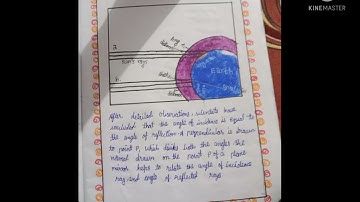 KINEMASTER
a
Sun's rays
b
Earth
After detailed observations, scientists have
concluded that the angle of incidence is equal to
the angle of reflection. A perpendicular is drawn
to point P, which divides both the angles the
normal drawn on the point P of a plane
mirror helps to relate the angle of incidence
ray and angle of reflected rays